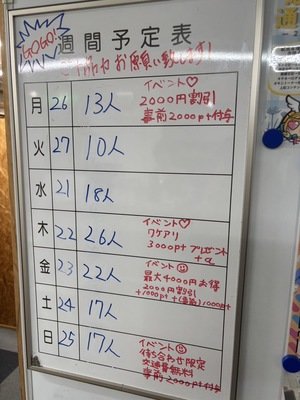 GOGO!
週間予定表
ご予約お願い致します!
月 26 13人
イベント♡
2000円割引
事前2000pt付与
火 27 10人
水 21 18人
木 22 26人
イベント♡
ワケアリ
3000pt プレゼント
+α
金 23 22人
イベント
最大4000円お得
2000円割引
+1000pt+(事前)1000pt
土 24 17人
日 25 17人
イベント
待ち合わせ限定
交通費無料
事前2000pt付与